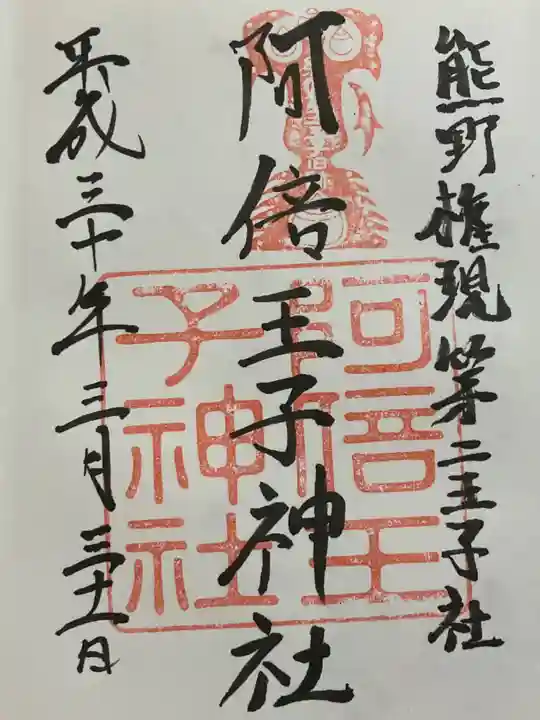 熊野権現第二王子社
阿倍王子神社
阿倍王
子神社
平成三十年三月三十一日